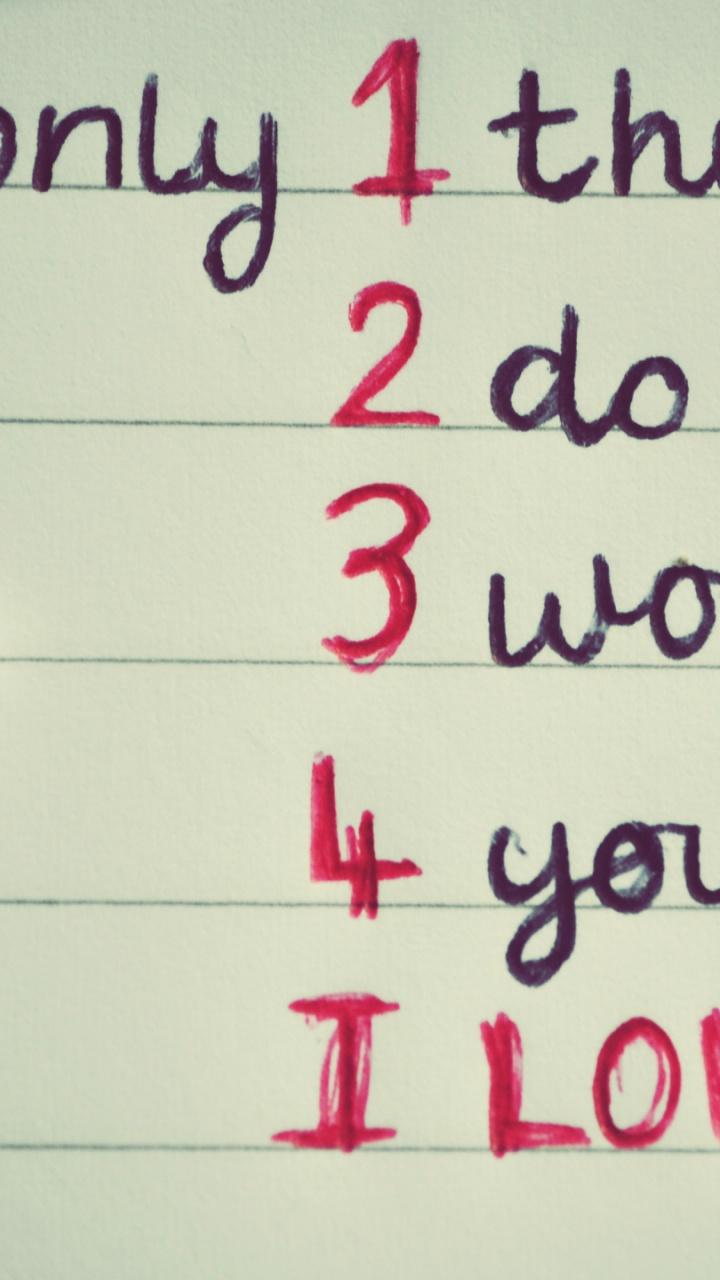 only 1 the
2 do
3 wo
4 you
I LO